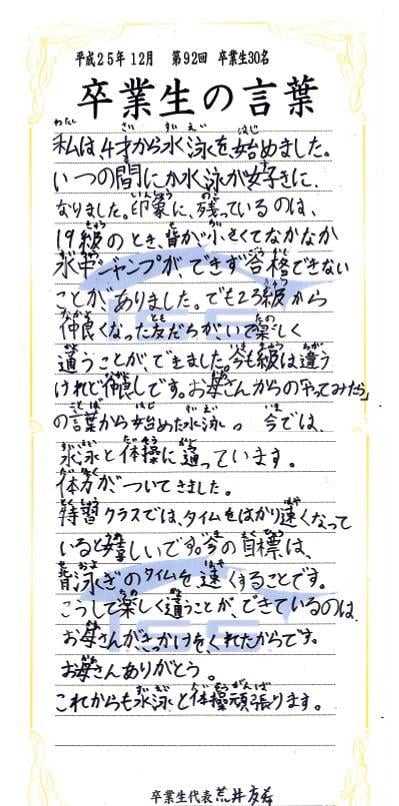 平成25年12月 第92回 卒業生30名
卒業生の言葉
私は、4才から水泳を始めました。
いつの間にか水泳が好きに、
なりました。印象に、残っているのは、
19級のとき、背が小さくてなかなか
水中ジャンプが、できず合格できない
ことが、ありました。でもころ級から
仲良くなった友だちが、いて楽しく
通うことが、できました。今も級は違う
けれど仲良しです。お母さんからの「やってみたら」
の言葉から始めた水泳。 今では、
水泳と体操に通っています。
体力が、ついてきました。
特習クラスでは、タイムをはかり速くなって
いると嬉しいです。今の目標は、
背泳ぎのタイムを、速くすることです。
こうして楽しく通うことが、できているのは、
お母さんがきっかけを、くれたからです。
お母さんありがとう。
これからも水泳と体操頑張ります。
卒業生代表 荒井